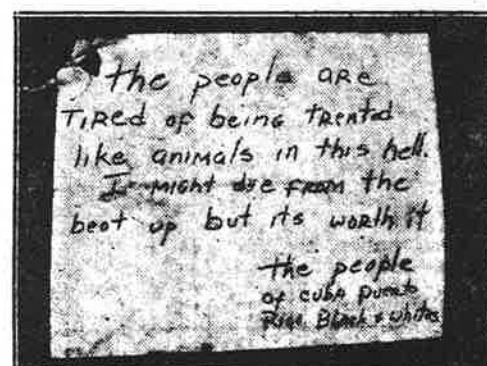 the people are
TiRed of being TReated
like animals in this hell.
I might die from the
beat up but its worth it
the people
of cuba Puerto
Rico Black & whites